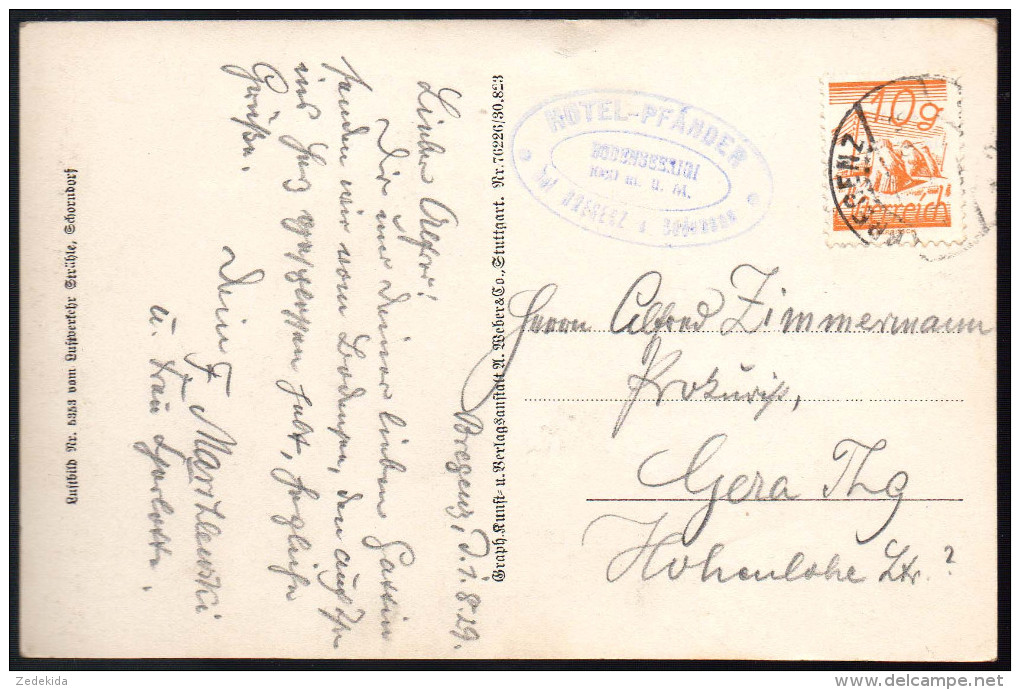 Lieber Alfred!
Dir und Deiner lieben Gattin
senden wir vom Bodensee, den auch Ihr
ins Herz geschlossen habt, herzliche
Grüße.
Dein F. Marchlewski
u. Frau Charlotte.
Bregenz, d. 1.8.29.
Luftbild Nr. 5353 vom Luftverkehr Strähle, Schorndorf
Graph. Kunst- u. Verlagsanstalt A. Weber & Co., Stuttgart. Nr. 76226/30.823
HOTEL-PFÄNDER
BODENSEERIGI
m. ü. M.
bei BREGENZ
10 g
Österreich
BREGENZ
Herrn Alfred Zimmermann
Prokurist,
Gera Thg
Hohenlohe Str. ?
Zedekida
delcampe.net